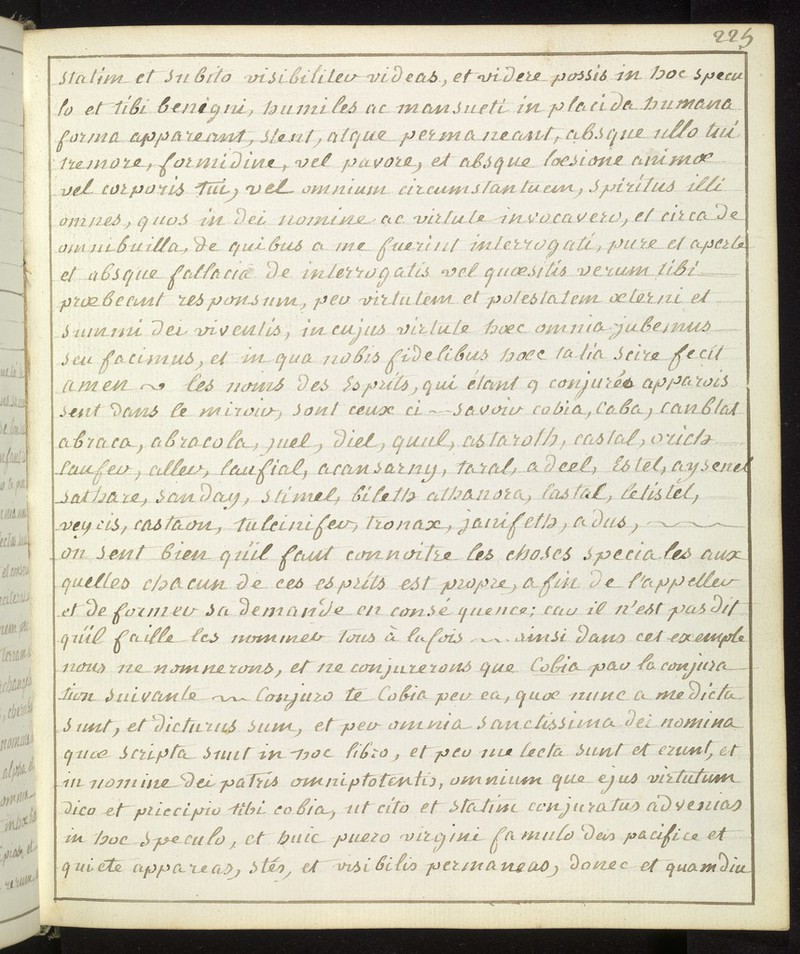 225
statim et subito visibiliter videas, et videre possis in hoc specu
lo et tibi benigni, humiles ac mansueti in placida humana
forma appareant, stent, atque permaneant, absque ullo tui
tremore, formidine, vel pavore, et absque læsione animæ
vel corporis tui, vel omnium circumstantium, spiritus illi
omnes, quos in dei nomine ac virtute invocavero, et circa de
omnibuilla, de quibus a me fuerint interrogati, pure et aperte
et absque fallacia de interrogatis vel quæsitis verum tibi
præbeant responsum, per virtutem et potestatem æterni et
summi dei viventis, in cujus virtute hæc omnia jubemus
seu facimus, et in qua nobis fidelibus hæc talia scire fecit
amen ~ les noms des Esprits, qui étant 9 conjurés apparois
sent dans le miroir, sont ceux ci — savoir cobia, caba, canblat
abraca, abracola, juel, diel, quul, astaroth, castal, orich
laufer, aller, laufial, acansarny, taral, adeel, Estel, aysenel
sathare, sanday, stimel, bileth athanora, lastal, letistel,
veycis, castaon, tulcinifer, tronax, janifeth, adus,
on sent bien qu'il faut connoitre les choses speciales aux
quelles chacun de ces esprits est propre, afin de l'appeller
et de former sa demande en consé quence; car il n'est pas dit
qu'il faille les nommer tous à la fois ~ ainsi dans cet exemple
nous ne nomnerons, et ne conjurerons que Cobia par la conjura
tion suivante ~ Conjuro te Cobia per ea, quæ nunc a me dicta
sunt, et dicturus sum, et per omnia sanctissima dei nomina
quæ scripta sunt in hoc libro, et per me lecta sunt et erunt, et
in nomine dei patris omniptotentis, omnium que ejus virtutum
dico et priccipio tibi cobia, ut cito et statim conjuratus advenias
in hoc speculo, et huic puero virgini famulo dei pacifice et
quiete appareas, stes, et visibilis permaneas, donec et quamdiu